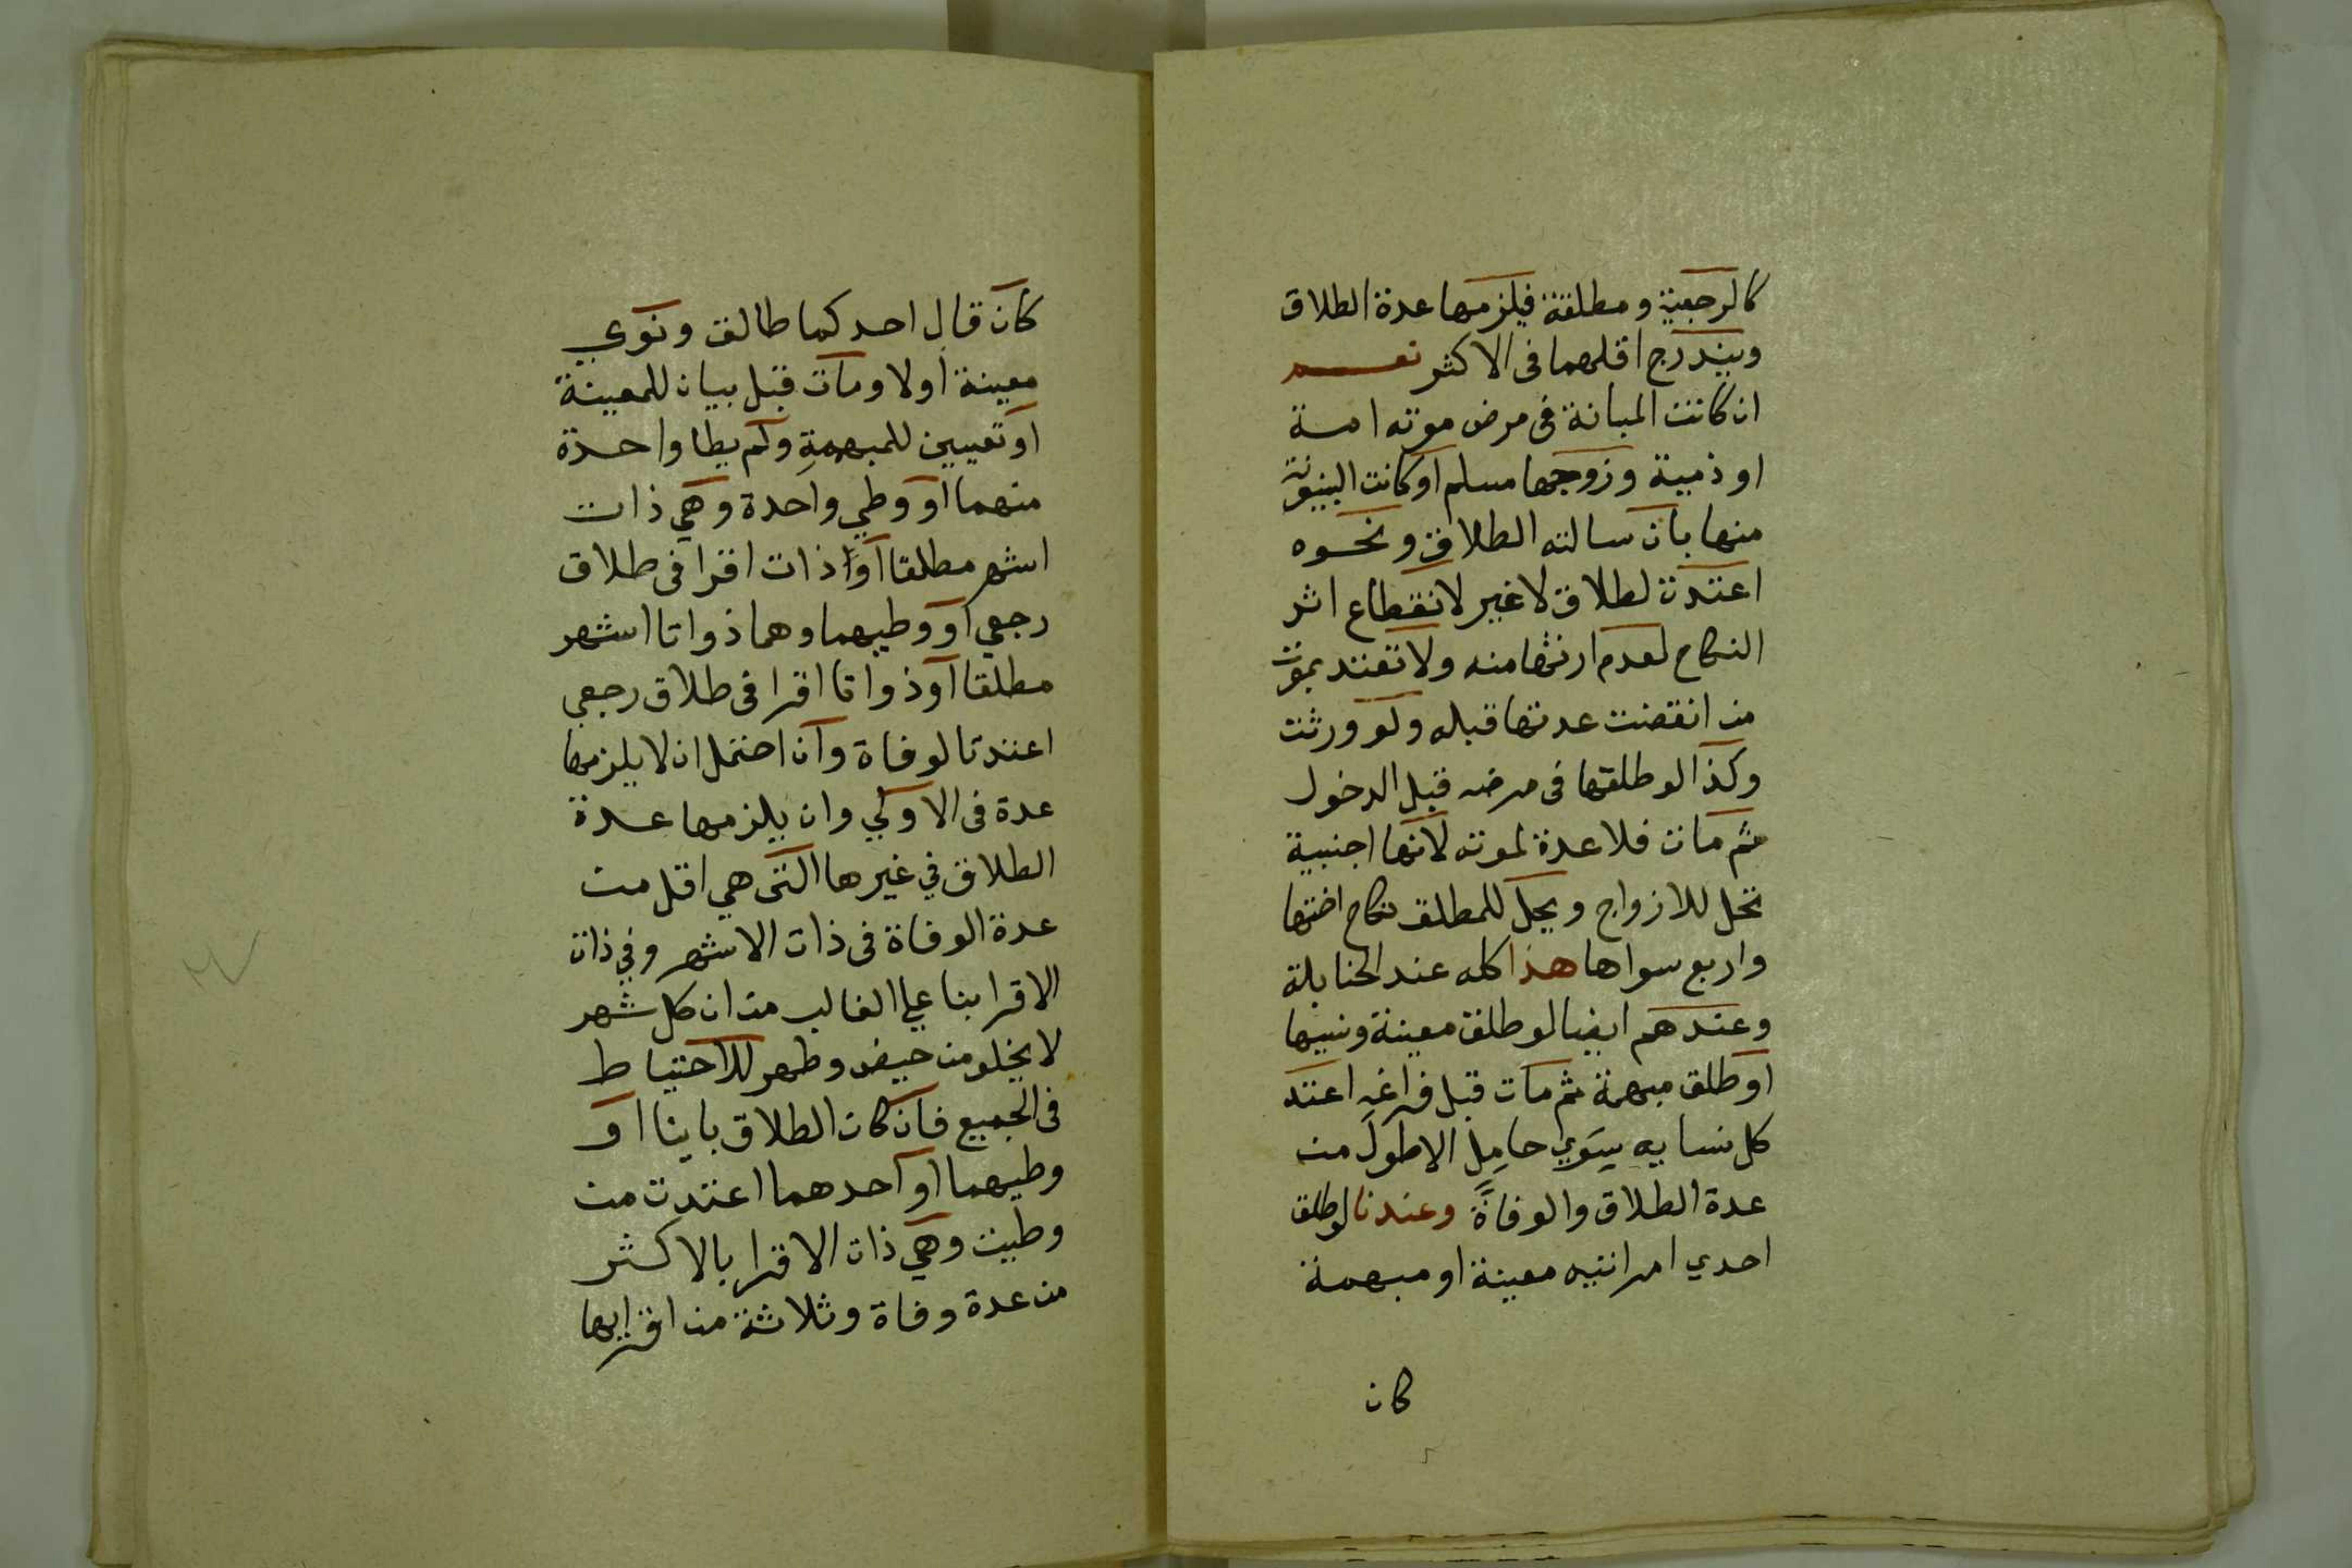 كالرجعية ومطلقة فيلزمها عدة الطلاق
ويندرج اقلهما فى الاكثر نعم
ان كانت المبانة فى مرض موته امة
او ذمية وزوجها مسلم او كانت البينونة
منها بان سالته الطلاق ونحوه
اعتدت لطلاق لا غير لانقطاع اثر
النكاح لعدم ارثها منه ولا تعتد بموت
من انقضت عدتها قبله ولو ورثت
وكذا لو طلقها فى مرضه قبل الدخول
ثم مات فلا عدة لموته لانها اجنبية
تحل للازواج ويحل للمطلق نكاح اختها
واربع سواها هذا كله عند الحنابلة
وعندهم ايضا لو طلق معينة ونسيها
او طلق مبهمة ثم مات قبل قراغه اعتد
كل نسايه سوي حامل الاطول من
عدة الطلاق والوفاة وعندنا لو طلق
احدي امراتيه معينة او مبهمة
كان
كان قال احدكما طالق ونوي
معينة اولا ومات قبل بيان للمعينة
او تعيين للمبهمة ولم يطا واحدة
منهما او وطي واحدة وهي ذات
اشهر مطلقا او ذات اقرا فى طلاق
رجعي او وطيهما وهما ذواتا اشهر
مطلقا او ذواتا اقرا فى طلاق رجعي
اعتدتا لوفاة وان احتمل ان لا يلزمها
عدة فى الاولي وان يلزمها عدة
الطلاق في غيرها التى هي اقل من
عدة الوفاة فى ذات الاشهر وفي ذات
الاقرا بنا علي الغالب من ان كل شهر
لا يخلو من حيض وطهر للاحتياط
فى الجميع فان كان الطلاق باينا او
وطيهما او احدهما اعتدت من
وطيت وهي ذات الاقرا بالاكثر
من عدة وفاة وثلاثة من اقرايها